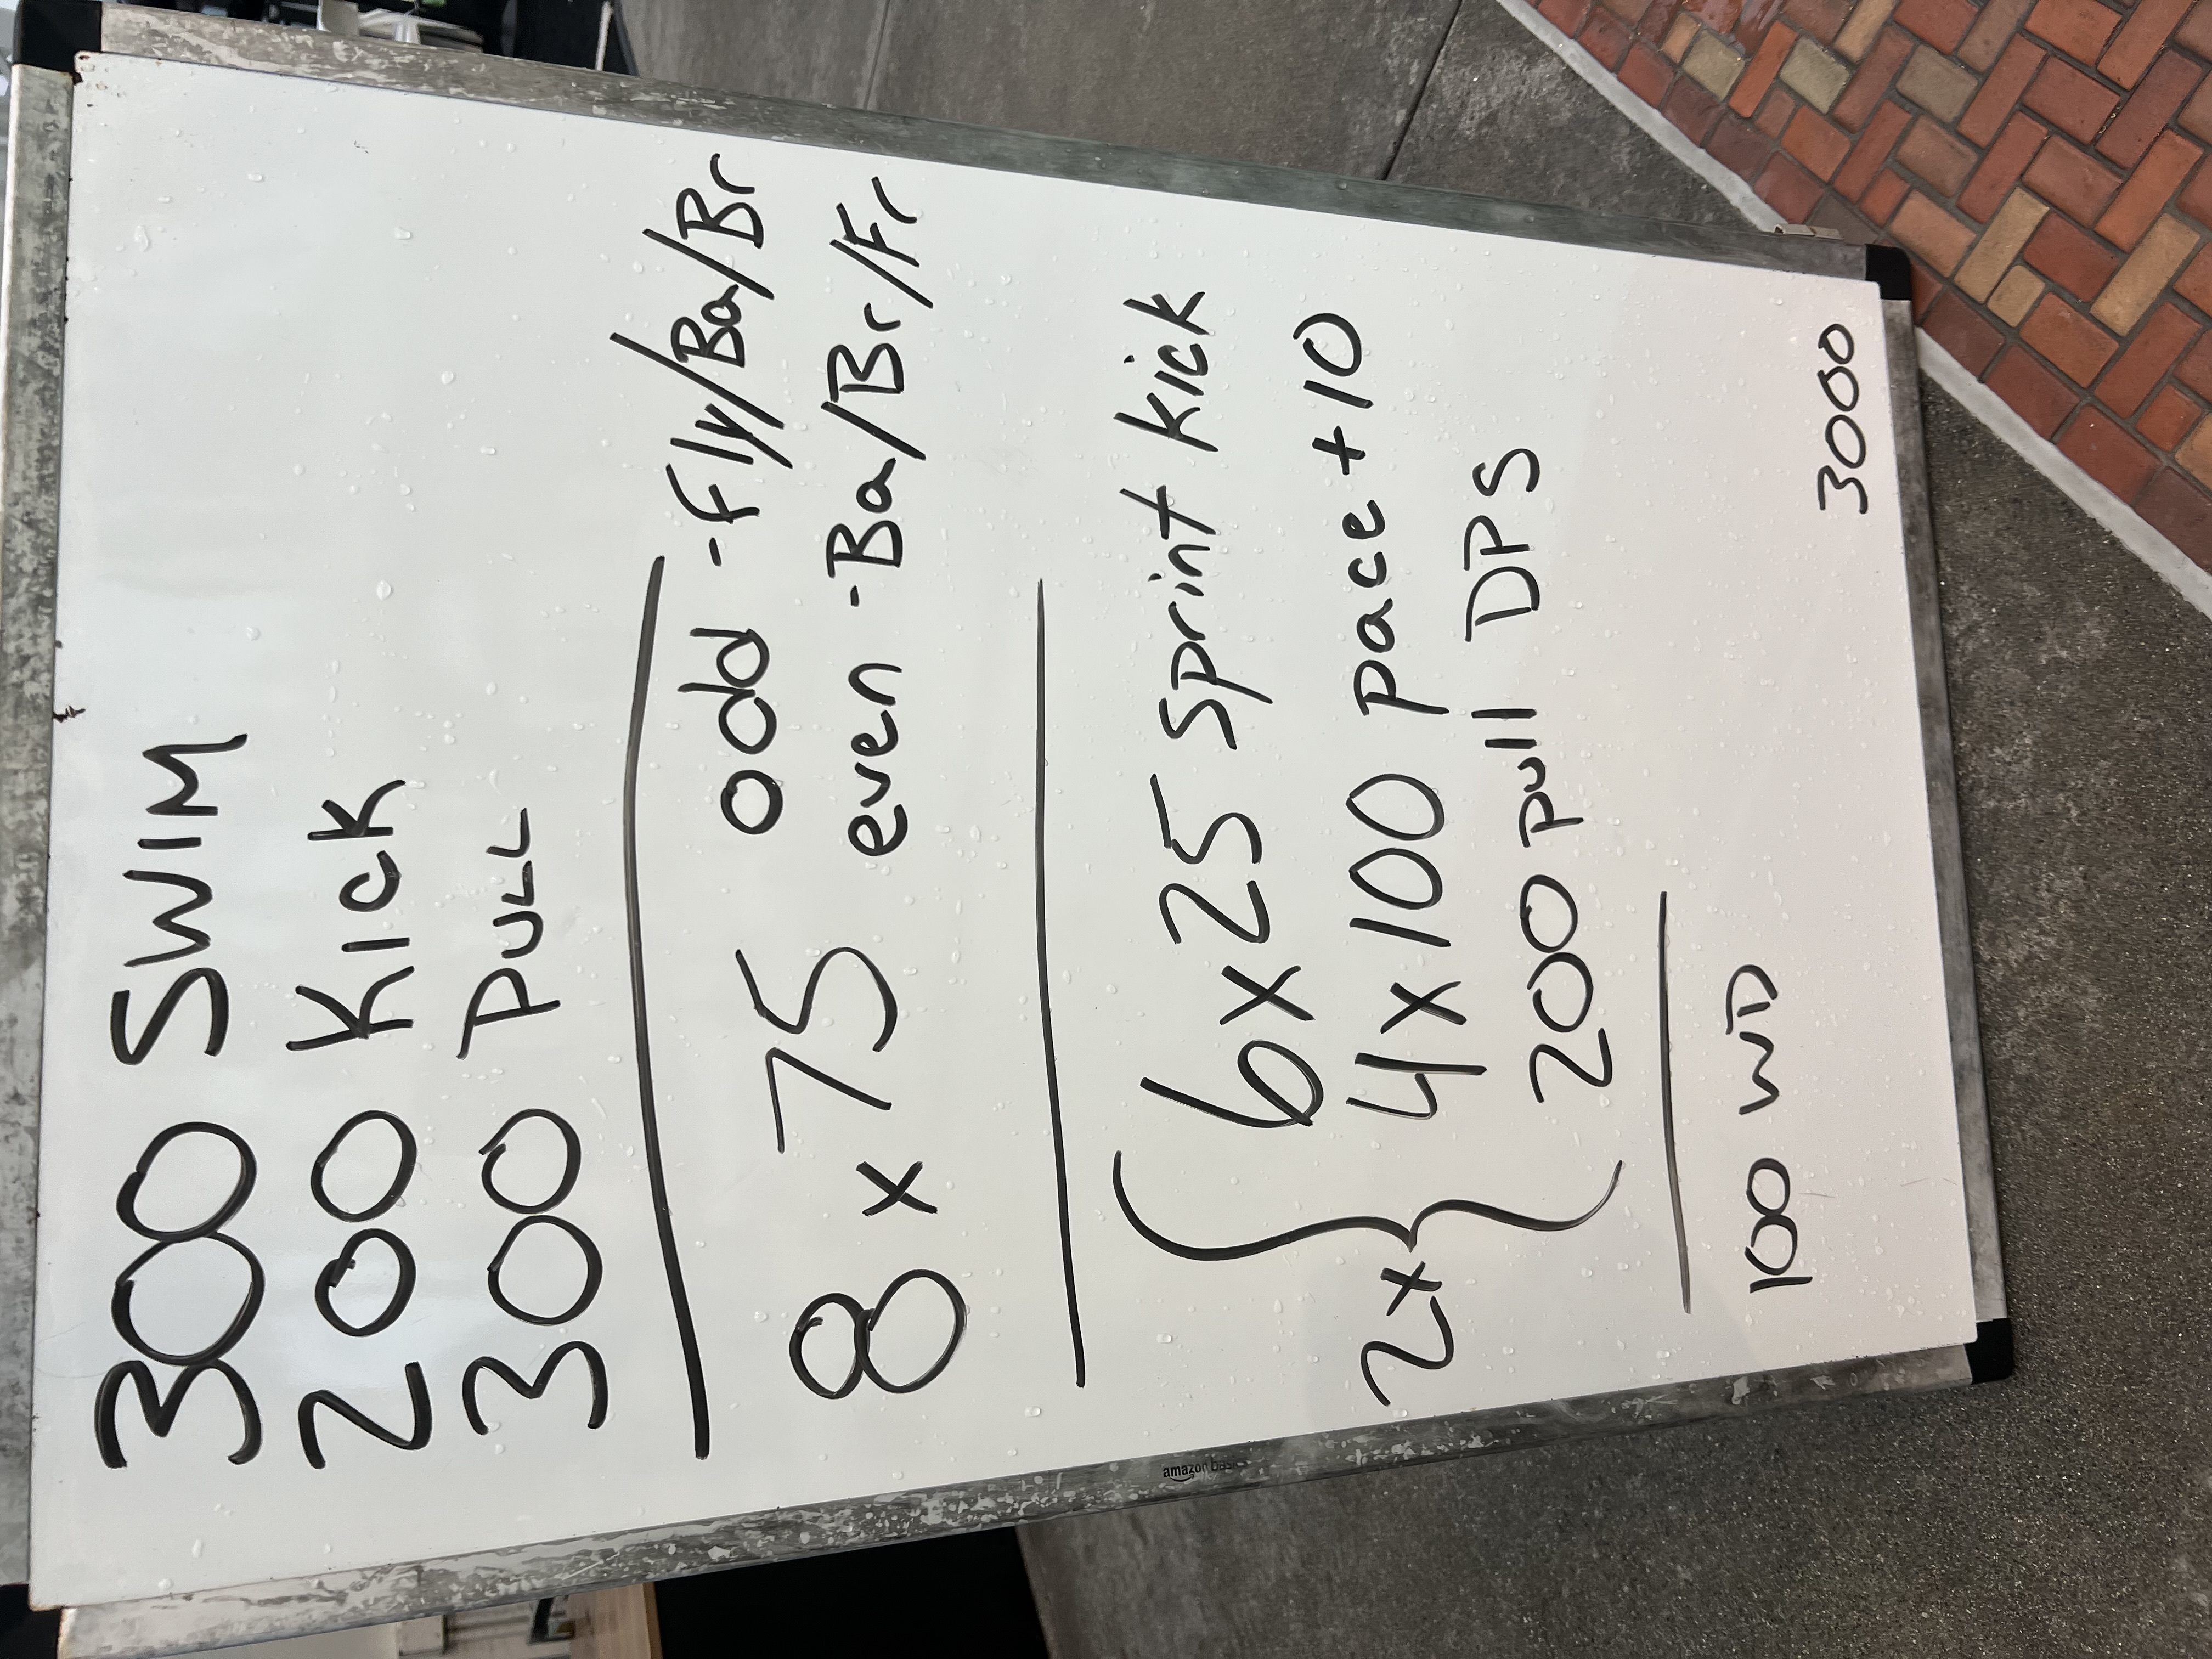 300 SWIM
200 Kick
300 PULL
8 x 75 odd - Fly/Ba/Br
even - Ba/Br/Fr
2x { 6 x 25 sprint kick
4 x 100 pace + 10
200 pull DPS
100 WD
3000
amazon basics